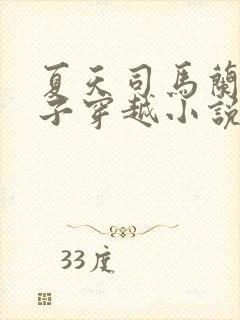 夏天司馬蘭
子穿越小說
33度